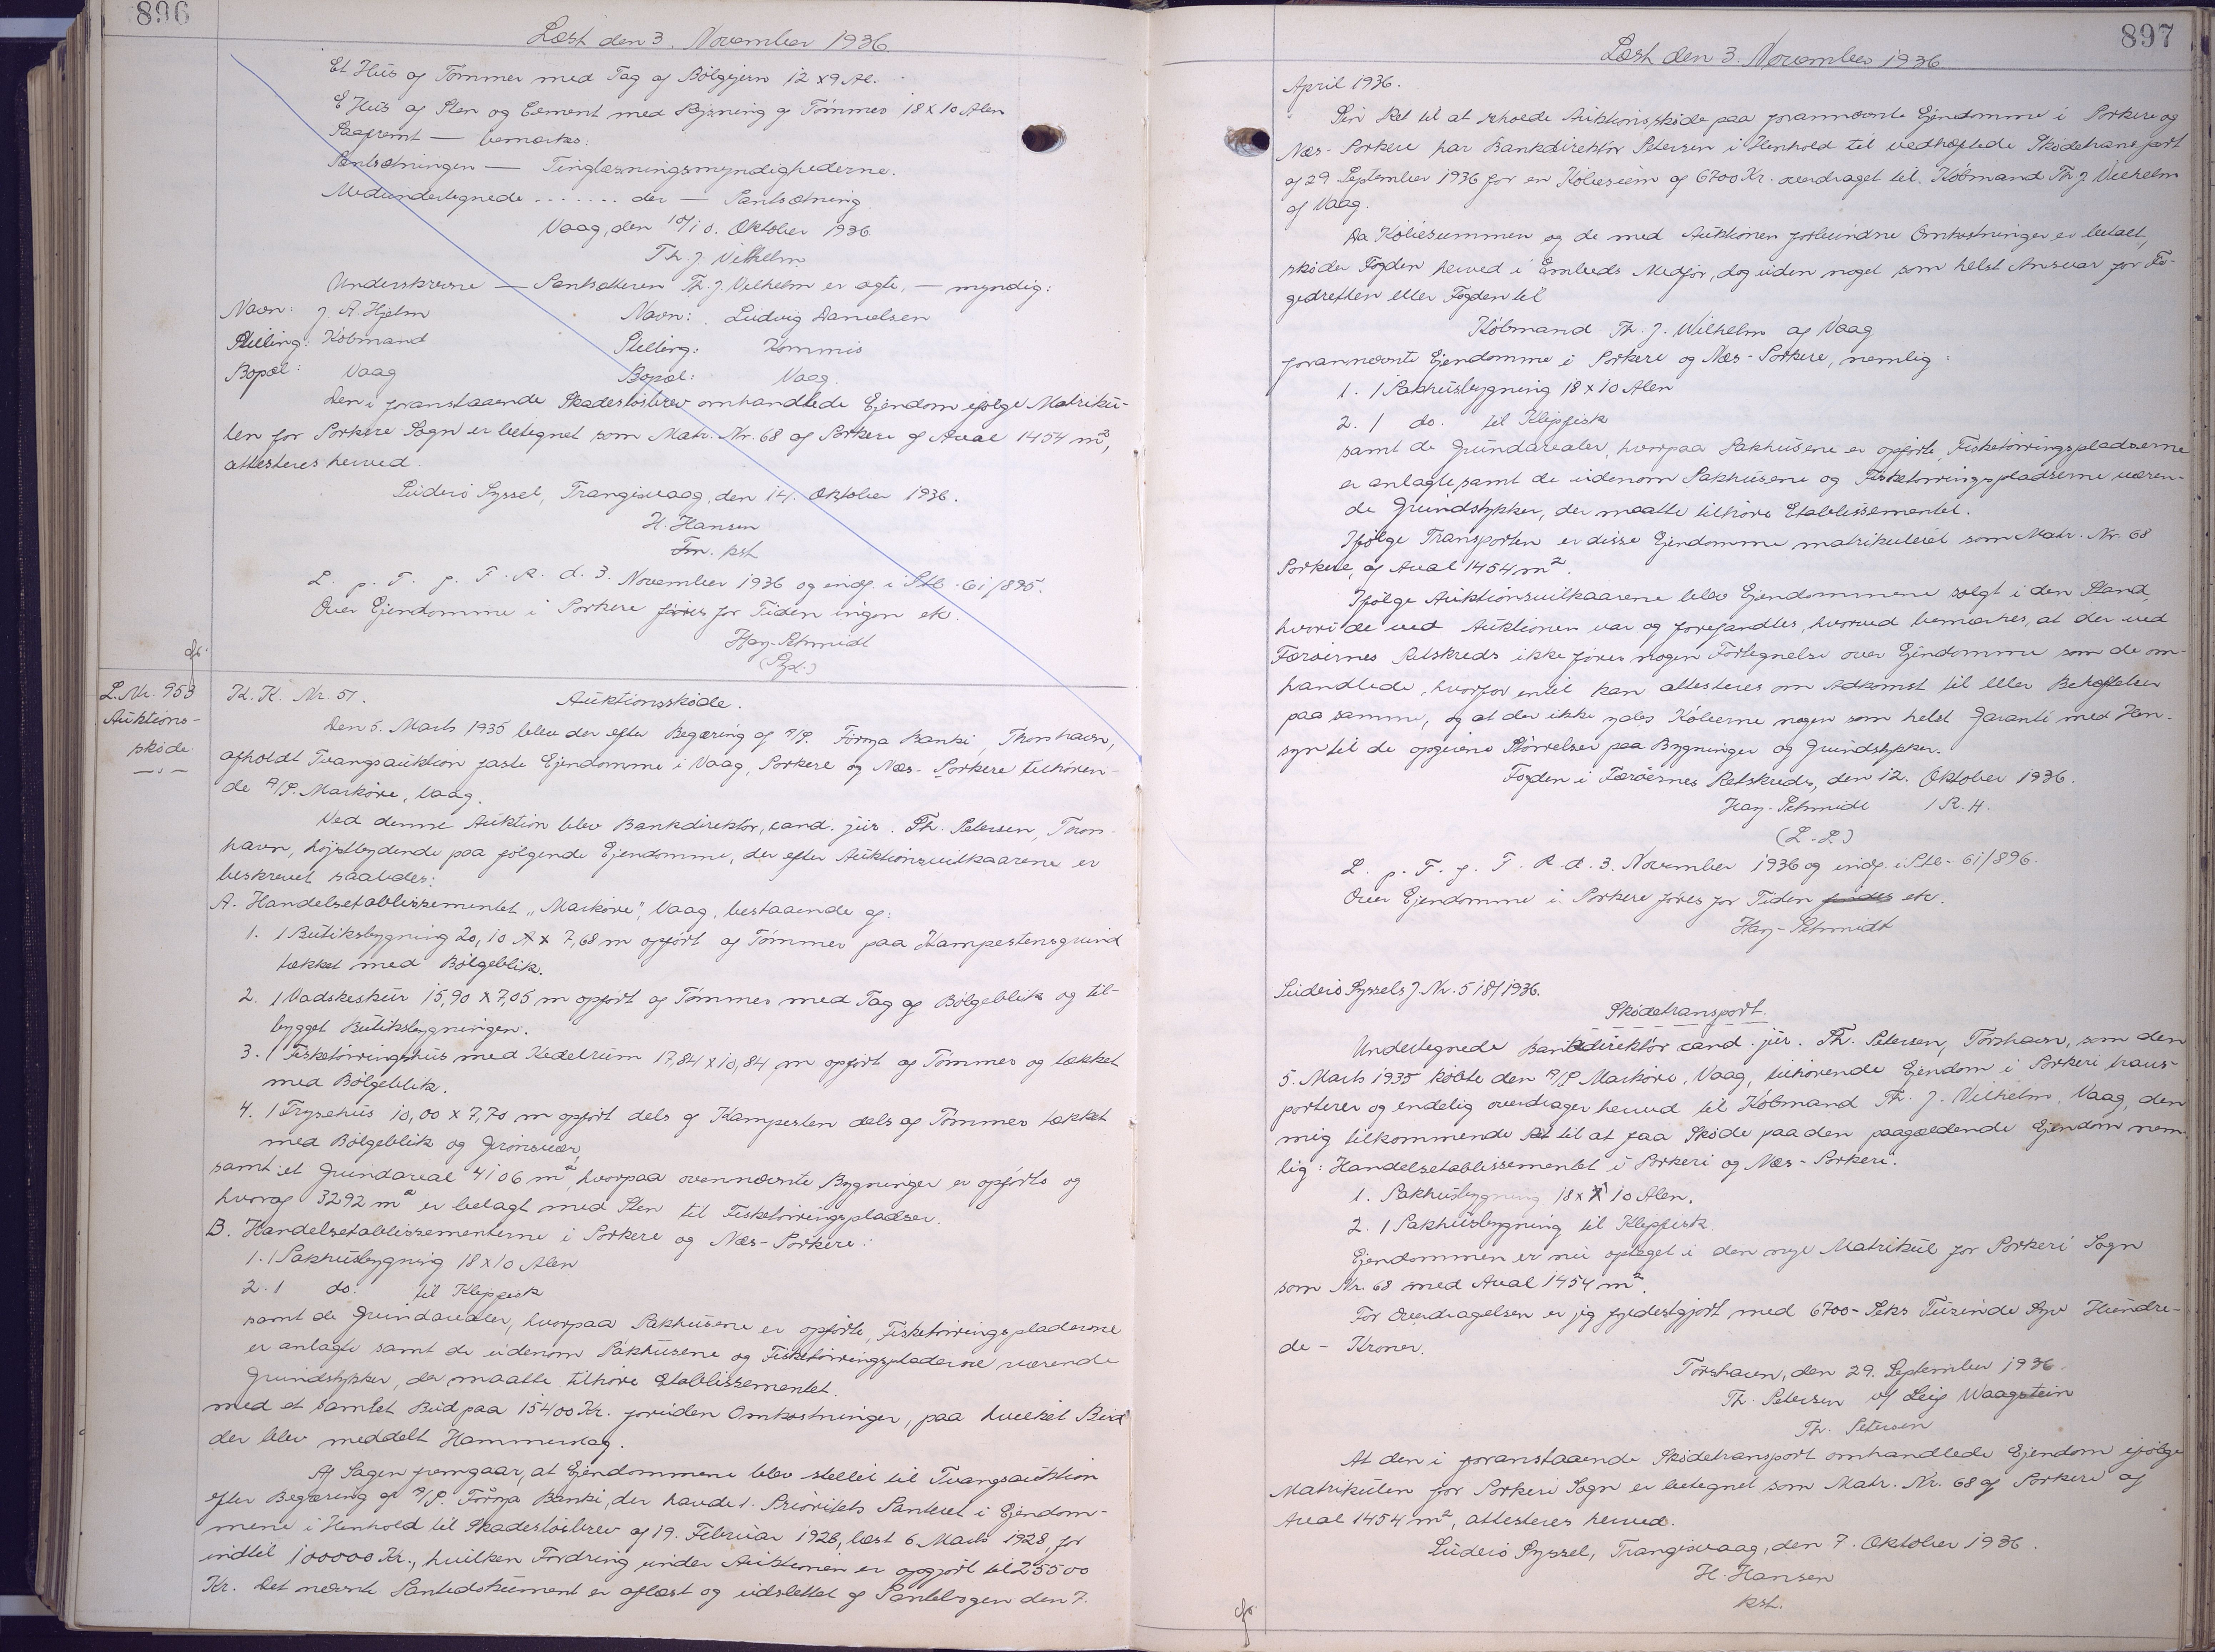 896
Læst den 3. November 1936
Et Hus af Tømmer med Tag af Bølgejern 12 x 9 Al.
E Hus af Sten og Cement med Rejsning af Tømmer 18 x 10 Alen
Saafremt — bemærkes:
Pantsætningen — Tinglæsningsmyndighederne.
Medundertegnede ....... der — Pantsætning.
Vaag, den 10/10. Oktober 1936.
Th. J. Vilhelm.
Underskrevne — Pantsætteren Th. J. Vilhelm er ægte, — myndig:
Navn: J. A. Hjelm Navn: Ludvig Danielsen
Stilling: Købmand Stilling: Kommis
Bopæl: Vaag Bopæl: Vaag.
Den i foranstaaende Skadesløsbrev omhandlede Ejendom ifølge Matriku-
len for Porkere Sogn er betegnet som Matr. Nr. 68 af Porkere af Areal 1454 m²,
attesteres herved.
Suderø Syssel, Trangisvaag, den 14. Oktober 1936.
H. Hansen
Fm. kst
L. p. T. f. F. R. d. 3. November 1936 og indf. i Skb. 61/895.
Over Ejendomme i Porkere føres for Tiden ingen ek.
Hay-Schmidt
cfr.
L. Nr. 953
Auktions-
skøde
K. K. Nr. 51.
Auktionsskøde.
Den 5. Marts 1935 blev der efter Begæring af A/S. Föroya Banki, Thorshavn,
afholdt Tvangsauktion faste Ejendomme i Vaag, Porkere og Næs-Porkere tilhøren-
de A/S. Markøre, Vaag.
Ved denne Auktion blev Bankdirektør, cand. jur. Th. Petersen, Thors-
havn, højstbydende paa følgende Ejendomme, der efter Auktionsvilkaarene er
beskrevet saaledes:
A. Handelsetablissementet „Markøre", Vaag, bestaaende af:
1. 1 Butiksbygning 20,10 x 7,68 m opført af Tømmer paa Kampestensgrund
tækket med Bølgeblik.
2. 1 Vadskeskur 15,90 x 7,05 m opført af Tømmer med Tag af Bølgeblik og til-
bygget Butiksbygningen.
3. 1 Fisketørringshus med Kedelrum 17,84 x 10,84 m opført af Tømmer og tækket
med Bølgeblik.
4. 1 Frysehus 10,00 x 7,70 m opført dels af Kampesten dels af Tømmer tækket
med Bølgeblik og Grønsvær,
samt et Grundareal 4106 m², hvorpaa ovennævnte Bygninger er opførte og
hvoraf 3292 m² er belagt med Sten til Fisketørringspladser.
B. Handelsetablissementerne i Porkere og Næs-Porkere:
1. 1 Pakhusbygning 18 x 10 Alen
2. 1 do. til Klipfisk
samt de Grundarealer, hvorpaa Pakhusene er opførte, Fisketørringspladserne
er anlagte samt de udenom Pakhusene og Fisketørringspladserne værende
Grundstykker, der maatte tilhøre Etablissementet.
med et samlet Bud paa 15400 Kr. foruden Omkostninger, paa hvilket Bud
der blev meddelt Hammerslag.
Af Sagen fremgaar, at Ejendommene blev stillet til Tvangsauktion
efter Begæring af A/S. Föroya Banki, der havde 1. Prioritets Panteret i Ejendom-
mene i Henhold til Skadesløsbrev af 19. Februar 1928, læst 6 Marts 1928, for
indtil 100000 Kr., hvilken Fordring under Auktionen er opgjort til 25500
Kr. Det nævnte Pantedokument er aflæst og udslettet af Pantebogen den 7.
897
Læst den 3. November 1936
April 1936.
Sin Ret til at erholde Auktionsskøde paa forannævnte Ejendomme i Porkere og
Næs-Porkere har Bankdirektør Petersen i Henhold til vedhæftede Skødetransport
af 29 September 1936 for en Købesum af 6700 Kr. overdraget til Købmand Th. J. Vilhelm
af Vaag.
Da Købesummen og de med Auktionen forbundne Omkostninger er betalt,
skøder Fogden herved i Embeds Medfør, dog uden noget som helst Ansvar for Fo-
gedretten eller Fogden til
Købmand Th. J. Wilhelm af Vaag
forannævnte Ejendomme i Porkere og Næs-Porkere, nemlig:
1. 1 Pakhusbygning 18 x 10 Alen
2. 1 do. til Klipfisk
samt de Grundarealer, hvorpaa Pakhusene er opførte, Fisketørringspladserne
er anlagte samt de udenom Pakhusene og Fisketørringspladserne væren-
de Grundstykker, der maatte tilhøre Etablissementet.
Ifølge Transporten er disse Ejendomme matrikuleret som Matr. Nr. 68
Porkere, af Areal 1454 m².
Ifølge Auktionsvilkaarene blev Ejendommene solgt i den Stand,
hvori de ved Auktionen var og forefandtes, hvorved bemærkes, at der ved
Færøernes Retskreds ikke føres nogen Fortegnelse over Ejendomme som de om-
handlede, hvorfor intet kan attesteres om Adkomst til eller Behæftelser
paa samme, og at der ikke ydes Køberne nogen som helst Garanti med Hen-
syn til de opgivne Størrelser paa Bygninger og Grundstykker.
Fogden i Færøernes Retskreds, den 12. Oktober 1936.
Hay-Schmidt / R. H.
(L.S.)
L. p. T. f. F. R d. 3. November 1936 og indf. i Skb. 61/896.
Over Ejendomme i Porkere føres for Tiden ek.
Hay-Schmidt
Suderø Syssels J. Nr. 518/1936.
Skødetransport.
Undertegnede Bankdirektør cand. jur. Th. Petersen, Tórshavn, som den
5. Marts 1935 købte den A/S Markøre, Vaag, tilhørende Ejendom i Porkeri trans-
porterer og endelig overdrager herved til Købmand Th. J. Vilhelm, Vaag, den
mig tilkommende Ret til at faa Skøde paa den paagældende Ejendom nem-
lig: Handelsetablissementet i Porkeri og Næs-Porkeri.
1. Pakhusbygning 18 x 10 Alen.
2. 1 Pakhusbygning til Klipfisk.
Ejendommen er nu optaget i den nye Matrikul for Porkeri Sogn
som Nr. 68 med Areal 1454 m².
For Overdragelsen er jeg fyldestgjort med 6700- Seks Tusinde Syv Hundre-
de - Kroner.
Tórshavn, den 29. September 1936.
Th. Petersen v/ Leif Waagstein
Th. Petersen
At den i foranstaaende Skødetransport omhandlede Ejendom ifølge
Matrikulen for Porkeri Sogn er betegnet som Matr. Nr. 68 af Porkere af
Areal 1454 m², attesteres herved.
Suderø Syssel, Trangisvaag, den 7. Oktober 1936.
H. Hansen
kst.
cfr.